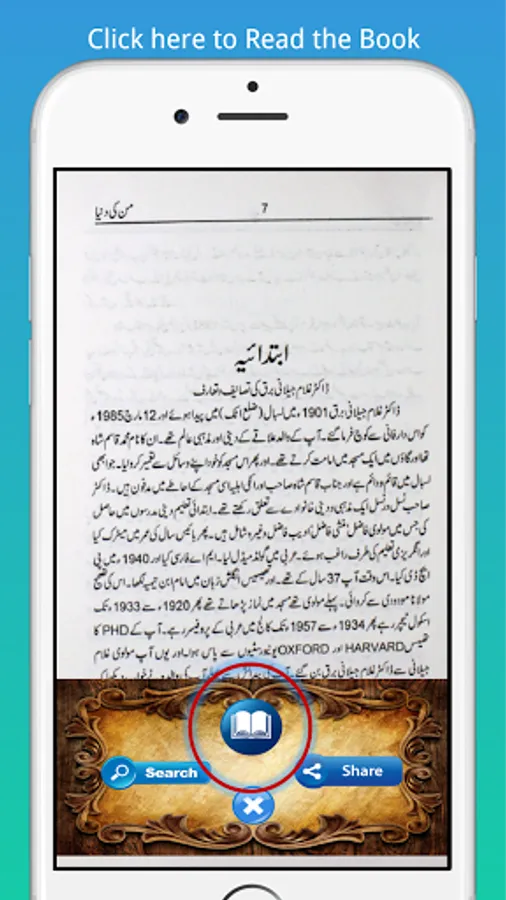 Click here to Read the Book
من کی دنیا
7
ابتدائیہ
ڈاکٹر غلام جیلانی برق کی تصانیف و تعارف
ڈاکٹر غلام جیلانی برق 1901ء میں بسال (ضلع اٹک) میں پیدا ہوئے اور 12 مارچ 1985ء
کو اس دار فانی سے کوچ فرما گئے۔ آپ کے والد علاقے کے دینی اور مذہبی عالم تھے۔ ان کا نام محمد قاسم شاہ
تھا اور گاؤں میں ایک مسجد میں امامت کرتے تھے۔ اور پھر اس مسجد کو خود اپنے وسائل سے تعمیر کروایا۔ جو ابھی
بسال میں قائم و دائم ہے اور جناب قاسم شاہ صاحب اور انکی اہلیہ اسی مسجد کے احاطے میں مدفون ہیں۔ ڈاکٹر
صاحب نسل در نسل ایک مذہبی و دینی خانوادے سے تعلق رکھتے تھے۔ ابتدائی تعلیم دینی مدرسوں میں حاصل
کی جس میں مولوی فاضل' منشی فاضل' ادیب فاضل وغیرہ شامل ہیں۔ پھر بائیس سال کی عمر میں میٹرک کیا
اور انگریزی تعلیم کی طرف راغب ہوئے۔ عربی میں گولڈ میڈل لیا۔ ایم اے فارسی کیا اور 1940ء میں پی
ایچ ڈی کیا۔ اس وقت آپ 37 سال کے تھے۔ اور تھیسس انگلش زبان میں امام ابن تیمیہ لکھا۔ اس کی تصحیح
مولانا مودودی سے کروائی۔ پہلے مولوی تھے مسجد میں نماز پڑھاتے تھے پھر 1920ء سے 1933ء تک
سکول ٹیچر رہے پھر 1934ء سے 1957ء تک کالج میں عربی کے پروفیسر رہے۔ آپ کے PHD کا
تھیسس HARVARD اور OXFORD یونیورسٹیوں سے پاس ہوا۔ اور یوں آپ مولوی غلام
جیلانی سے ڈاکٹر غلام جیلانی برق بن گئے۔
Search
Share